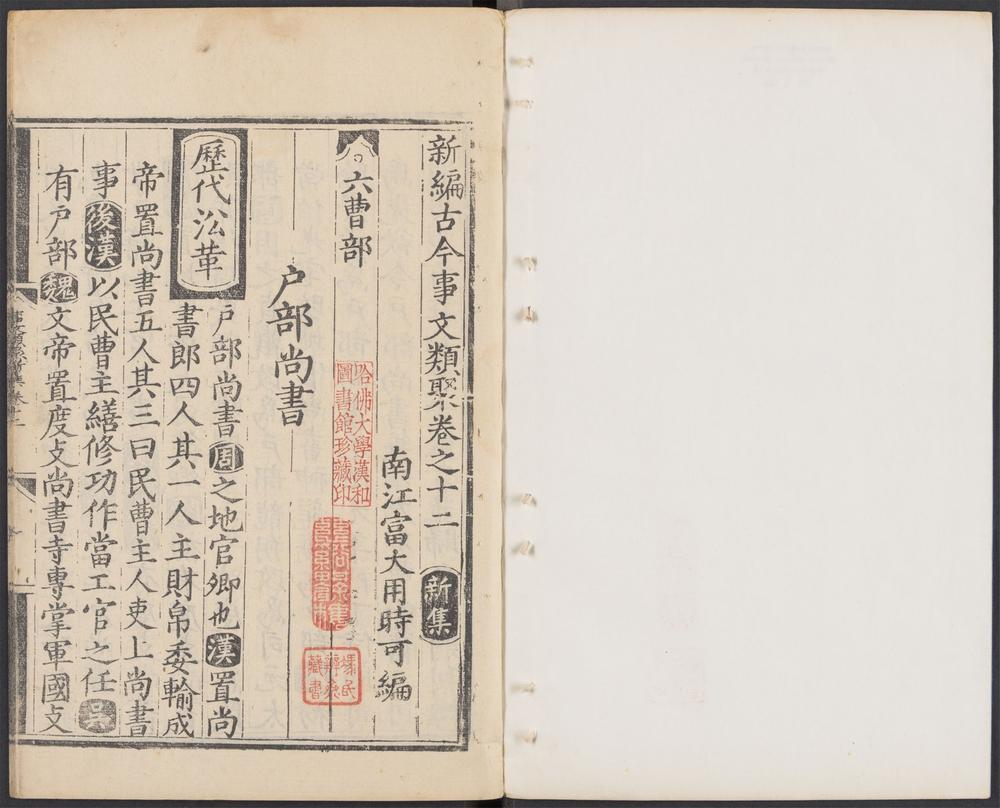 新編古今事文類聚卷之十二 新集
南江富大用時可編
六曹部
户部尚書
歷代沿革
户部尚書周之地官卿也漢置尚
書郎四人其一人主財帛委輸成
帝置尚書五人其三曰民曹主人吏上尚書
事後漢以民曹主繕修功作當工官之任吳
有户部魏文帝置度攴尚書寺專掌軍國攴
哈佛大學漢和
圖書館珍藏印